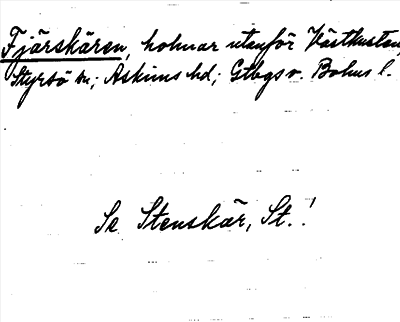 Fjärskären, holmar utanför Västkusten,
Styrsö sn; Askims hd; Gtbgs o. Bohus l.
Se Stenskär, St.!